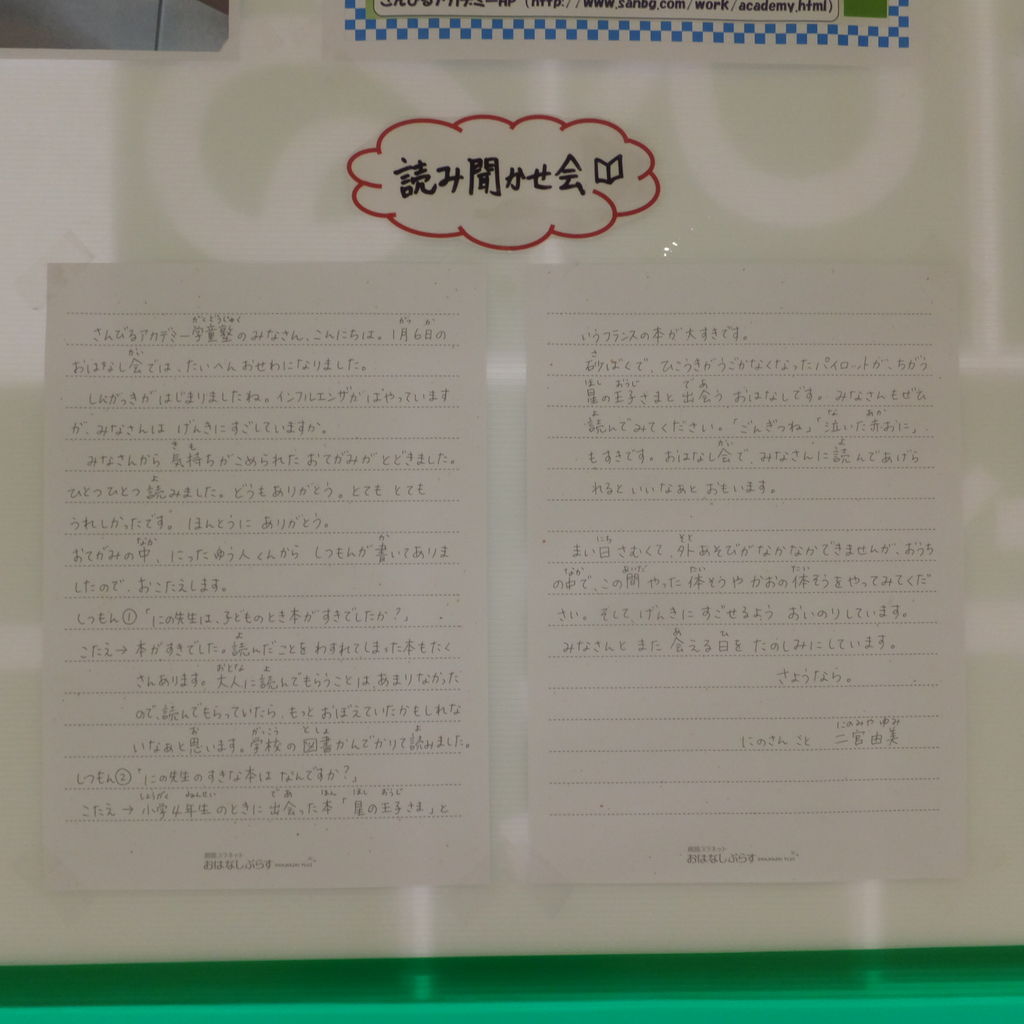 さんびるアカデミーHP (http://www.sanbg.com/work/academy.html)
読み聞かせ会
さんびるアカデミー学童塾のみなさん、こんにちは。1月6日の
おはなし会では、たいへんおせわになりました。
しんがっきがはじまりましたね。インフルエンザがはやっています
が、みなさんは げんきにすごしていますか。
みなさんから 気持ちがこめられた おてがみがとどきました。
ひとつひとつ 読みました。どうもありがとう。とても とても
うれしかったです。 ほんとうに ありがとう。
おてがみの中、にった ゆう人くんから しつもんが書いてありま
したので、おこたえします。
しつもん①「にの先生は、子どものとき本がすきでしたか?」
こたえ→ 本がすきでした。読んだことを わすれてしまった本もたく
さんあります。大人に読んでもらうことは、あまりなかった
ので、読んでもらっていたら、もっと おぼえていたかもしれな
いなあと思います。学校の図書かんでかりて読みました。
しつもん②「にの先生のすきな本は なんですか?」
こたえ → 小学4年生のときに 出会った本「星の王子さま」と
おはなしぷらす
いうフランスの本が大すきです。
砂ばくで、ひこうきがうごかなくなったパイロットが、ちがう
星の王子さまと 出会う おはなしです。みなさんもぜひ
読んでみてください。「ごんぎつね」「泣いた赤おに」
もすきです。おはなし会で、みなさんに読んであげら
れると いいなあと おもいます。
まい日 さむくて、外あそびがなかなかできませんが、おうち
の中で、この間 やった 体そうや かおの体そうをやってみてくだ
さい。そして げんきに すごせるよう おいのりしています。
みなさんと また 会える日を たのしみにしています。
さようなら。
にのさん こと 二宮由美
おはなしぷらす